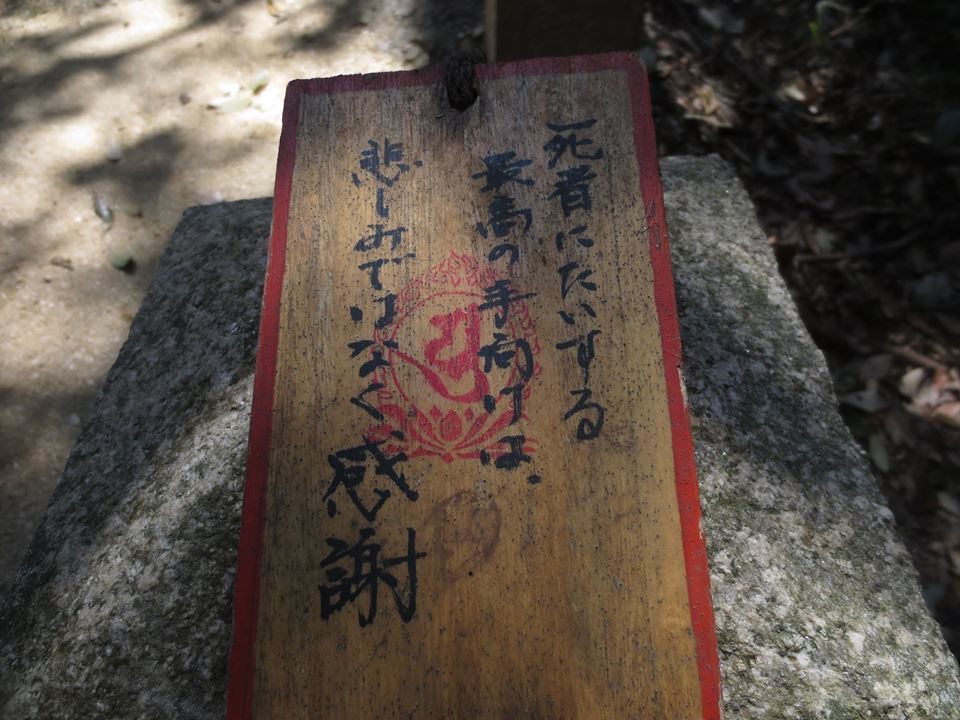 死者にたいする
最高の手向けは、
悲しみではなく感謝